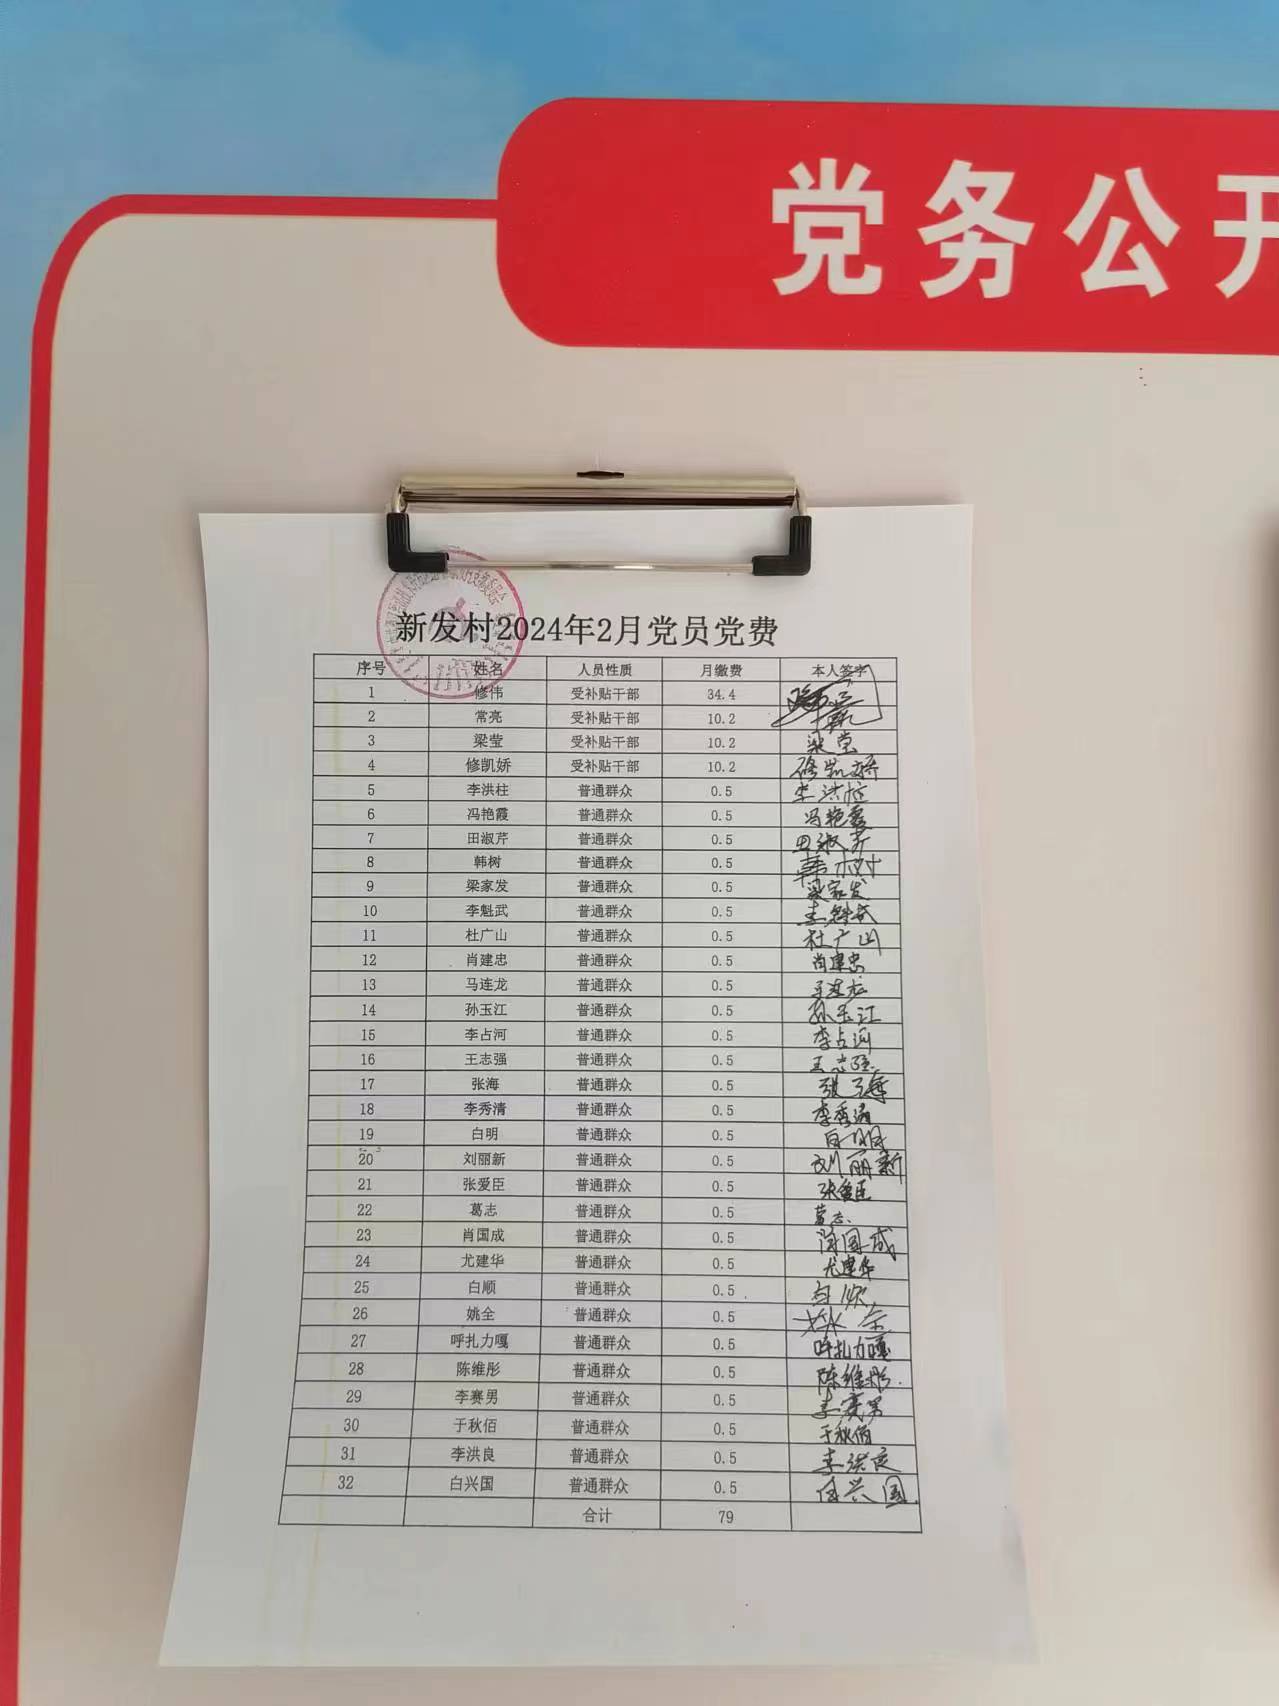 党务公开
新发村2024年2月党员党费
序号 姓名 人员性质 月缴费 本人签字
1 修伟 受补贴干部 34.4
2 常亮 受补贴干部 10.2
3 梁莹 受补贴干部 10.2 梁莹
4 修凯娇 受补贴干部 10.2 修凯娇
5 李洪柱 普通群众 0.5 李洪柱
6 冯艳霞 普通群众 0.5 冯艳霞
7 田淑芹 普通群众 0.5 田淑芹
8 韩树 普通群众 0.5 韩树
9 梁家发 普通群众 0.5 梁家发
10 李魁武 普通群众 0.5 李魁武
11 杜广山 普通群众 0.5 杜广山
12 肖建忠 普通群众 0.5 肖建忠
13 马连龙 普通群众 0.5 马连龙
14 孙玉江 普通群众 0.5 孙玉江
15 李占河 普通群众 0.5 李占河
16 王志强 普通群众 0.5 王志强
17 张海 普通群众 0.5 张海
18 李秀清 普通群众 0.5 李秀清
19 白明 普通群众 0.5 白明
20 刘丽新 普通群众 0.5 刘丽新
21 张爱臣 普通群众 0.5 张爱臣
22 葛志 普通群众 0.5 葛志
23 肖国成 普通群众 0.5 肖国成
24 尤建华 普通群众 0.5 尤建华
25 白顺 普通群众 0.5 白顺
26 姚全 普通群众 0.5 姚全
27 呼扎力嘎 普通群众 0.5 呼扎力嘎
28 陈维彤 普通群众 0.5 陈维彤
29 李赛男 普通群众 0.5 李赛男
30 于秋佰 普通群众 0.5 于秋佰
31 李洪良 普通群众 0.5 李洪良
32 白兴国 普通群众 0.5 白兴国
合计 79